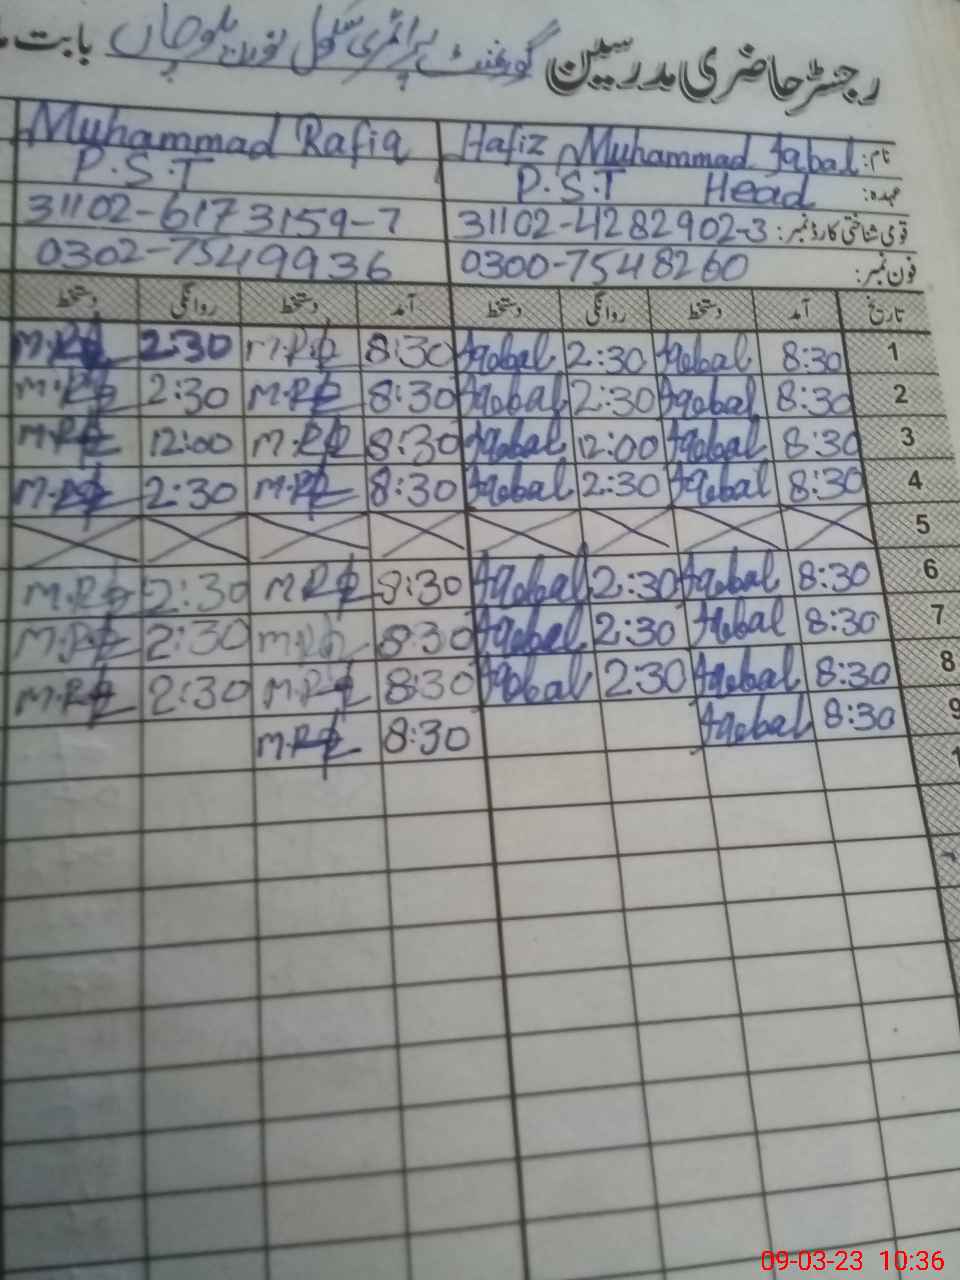 رجسٹر حاضری مدرسین گورنمنٹ پرائمری سکول نورن بلوچاں بابت
نام: Hafiz Muhammad Iqbal Muhammad Rafiq
عہدہ: P.S.T Head P.S.T
قومی شناختی کارڈ نمبر: 31102-4282902-3 31102-6173159-7
فون نمبر: 0300-7548260 0302-7549936
تاریخ آمد دستخط روانگی دستخط آمد دستخط روانگی دستخط
1 8:30 Iqbal 2:30 Iqbal 8:30 M.R 2:30 M.R
2 8:30 Iqbal 2:30 Iqbal 8:30 M.R 2:30 M.R
3 8:30 Iqbal 12:00 Iqbal 8:30 M.R 12:00 M.R
4 8:30 Iqbal 2:30 Iqbal 8:30 M.R 2:30 M.R
5
6 8:30 Iqbal 2:30 Iqbal 8:30 M.R 2:30 M.R
7 8:30 Iqbal 2:30 Iqbal 8:30 M.R 2:30 M.R
8 8:30 Iqbal 2:30 Iqbal 8:30 M.R 2:30 M.R
9 8:30 Iqbal 8:30 M.R
1
09-03-23 10:36